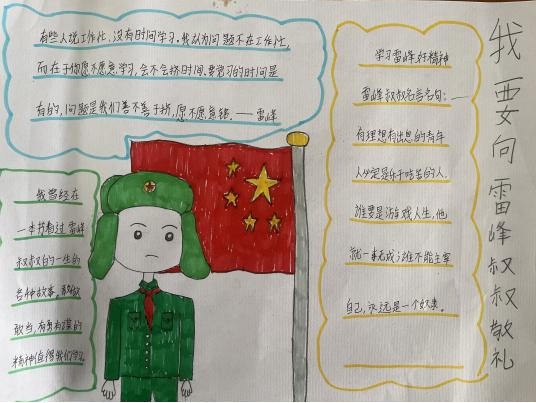 有些人说工作忙,没有时间学习.我认为问题不在工作忙,
而在于你愿不愿意学习,会不会挤时间.要学习的时间是
有的,问题是我们善不善于挤,愿不愿意钻.——雷峰
学习雷峰好精神
雷峰叔叔名言名句:——
有理想有出息的青年
人必定是乐于吃苦的人.
谁要是游戏人生,他
就一事无成;谁不能主宰
自己,永远是一个奴隶。
我曾经在
一本书看过雷峰
叔叔的一生的
各种故事,
敢当,有勇有谋的
精神值得我们学习.
我要向雷峰叔叔敬礼